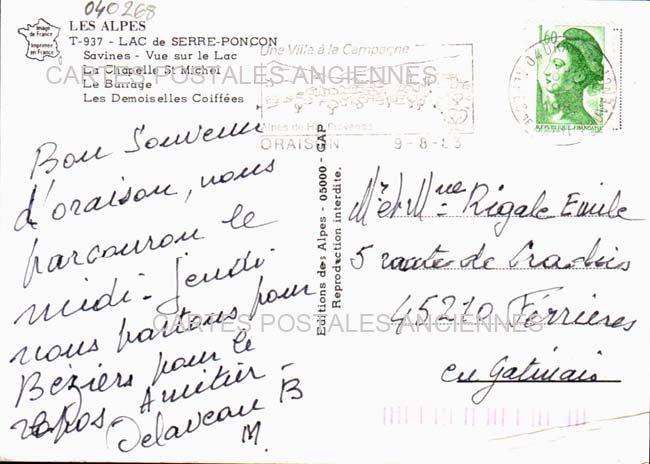 040268
Image de France
Imprimée en France
LES ALPES
T-937 - LAC de SERRE-PONÇON
Savines - Vue sur le Lac
La Chapelle St Michel
Le Barrage
Les Demoiselles Coiffées
Une Ville à la Campagne
Alpes de Hte Provence
ORAISON 9-8-83
1,60
REPUBLIQUE FRANÇAISE
CARTES POSTALES ANCIENNES
Bon Souvenir
d'oraison, nous
parcouron le
midi - jeudi
nous partons pour
Béziers pour le
repos - Amitier -
Delaveau B
M.
Editions des Alpes - 05000 - GAP
Reproduction interdite.
Mr et Mme Rigale Emile
5 route de
45210 Ferrières
en Gatinais
CARTES POSTALES ANCIENNES